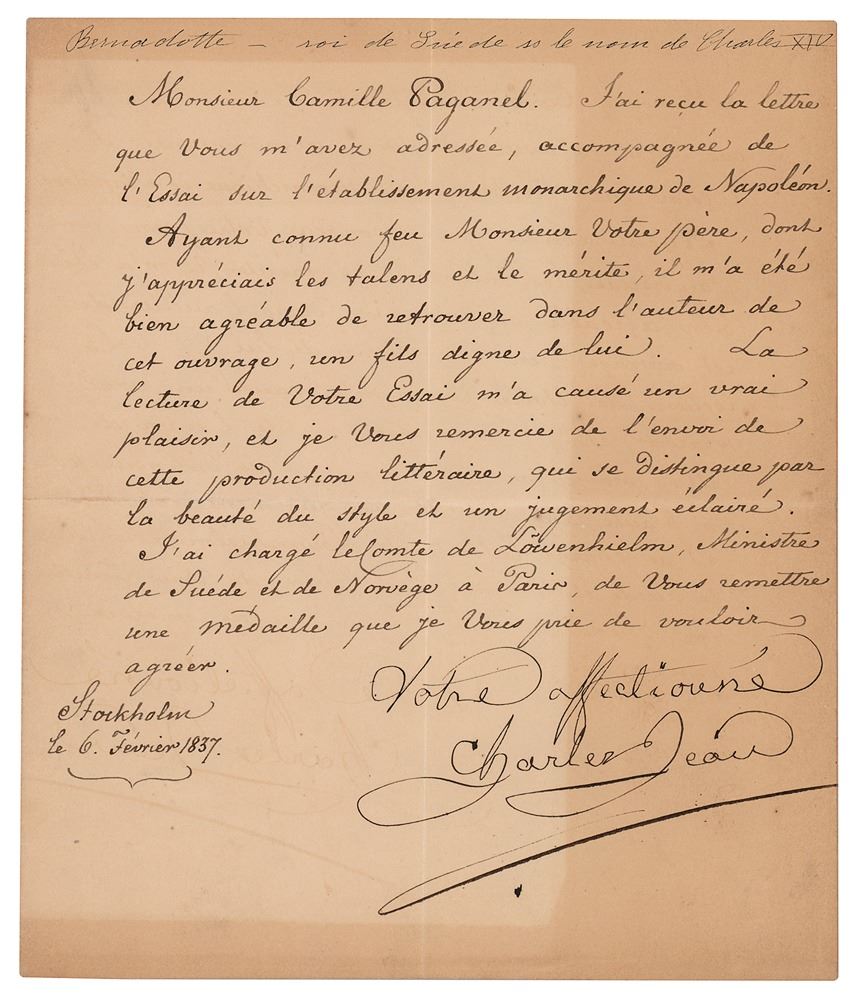 Bernadotte - roi de Suède ss le nom de Charles XIV
Monsieur Camille Paganel. J'ai reçu la lettre
que Vous m'avez adressée, accompagnée de
l'Essai sur l'établissement monarchique de Napoléon.
Ayant connu feu Monsieur Votre père, dont
j'appréciais les talens et le mérite, il m'a été
bien agréable de retrouver dans l'auteur de
cet ouvrage, un fils digne de lui. La
lecture de Votre Essai m'a causé un vrai
plaisir, et je Vous remercie de l'envoi de
cette production littéraire, qui se distingue par
la beauté du style et un jugement éclairé.
J'ai chargé le Comte de Löwenhielm, Ministre
de Suéde et de Norvège à Paris, de Vous remettre
une médaille que je Vous prie de vouloir
agréer.
Votre affectionné
Stockholm
le 6. Février 1837.
Charles Jean